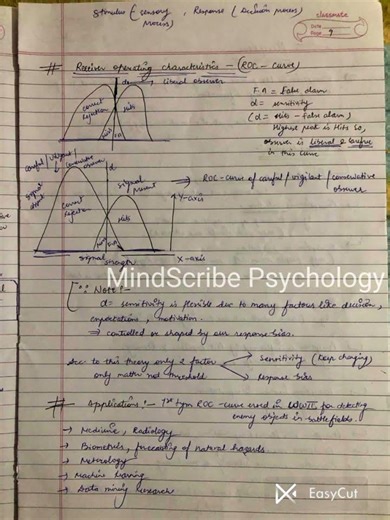 Stimulus (sensory process), Response (Decision process)
classmate
Date
Page 9
# Receiver operating characteristics - (ROC - Curve)
d → liberal observer
correct rejection
Hits
F.A = False alarm
d = sensitivity
(d = Hits - False alarm)
Highest peak is Hits so,
observer is liberal &
in this curve
Careful / Vigilant / Conservative observer
d
signal
correct rejection
signal present
Hits
Y-axis
⇒ ROC-curve of careful / vigilant / conservative observer
signal strength
X-axis
MindScribe Psychology
Note :-
d = sensitivity is flexible due to many factors like decision,
expectations, motivation.
⇒ controlled or shaped by our response bias.
Acc to this theory only 2 factor
only matter not threshold
Sensitivity (keep changing)
Response bias
# Applications :- 1st tym ROC-curve used in WWII for detecting
enemy objects in battlefields.
→ Medicine, Radiology
→ Biometrics, forecasting of natural hazards.
→ Meterology
→ Machine learning
→ Data mining research
EasyCut